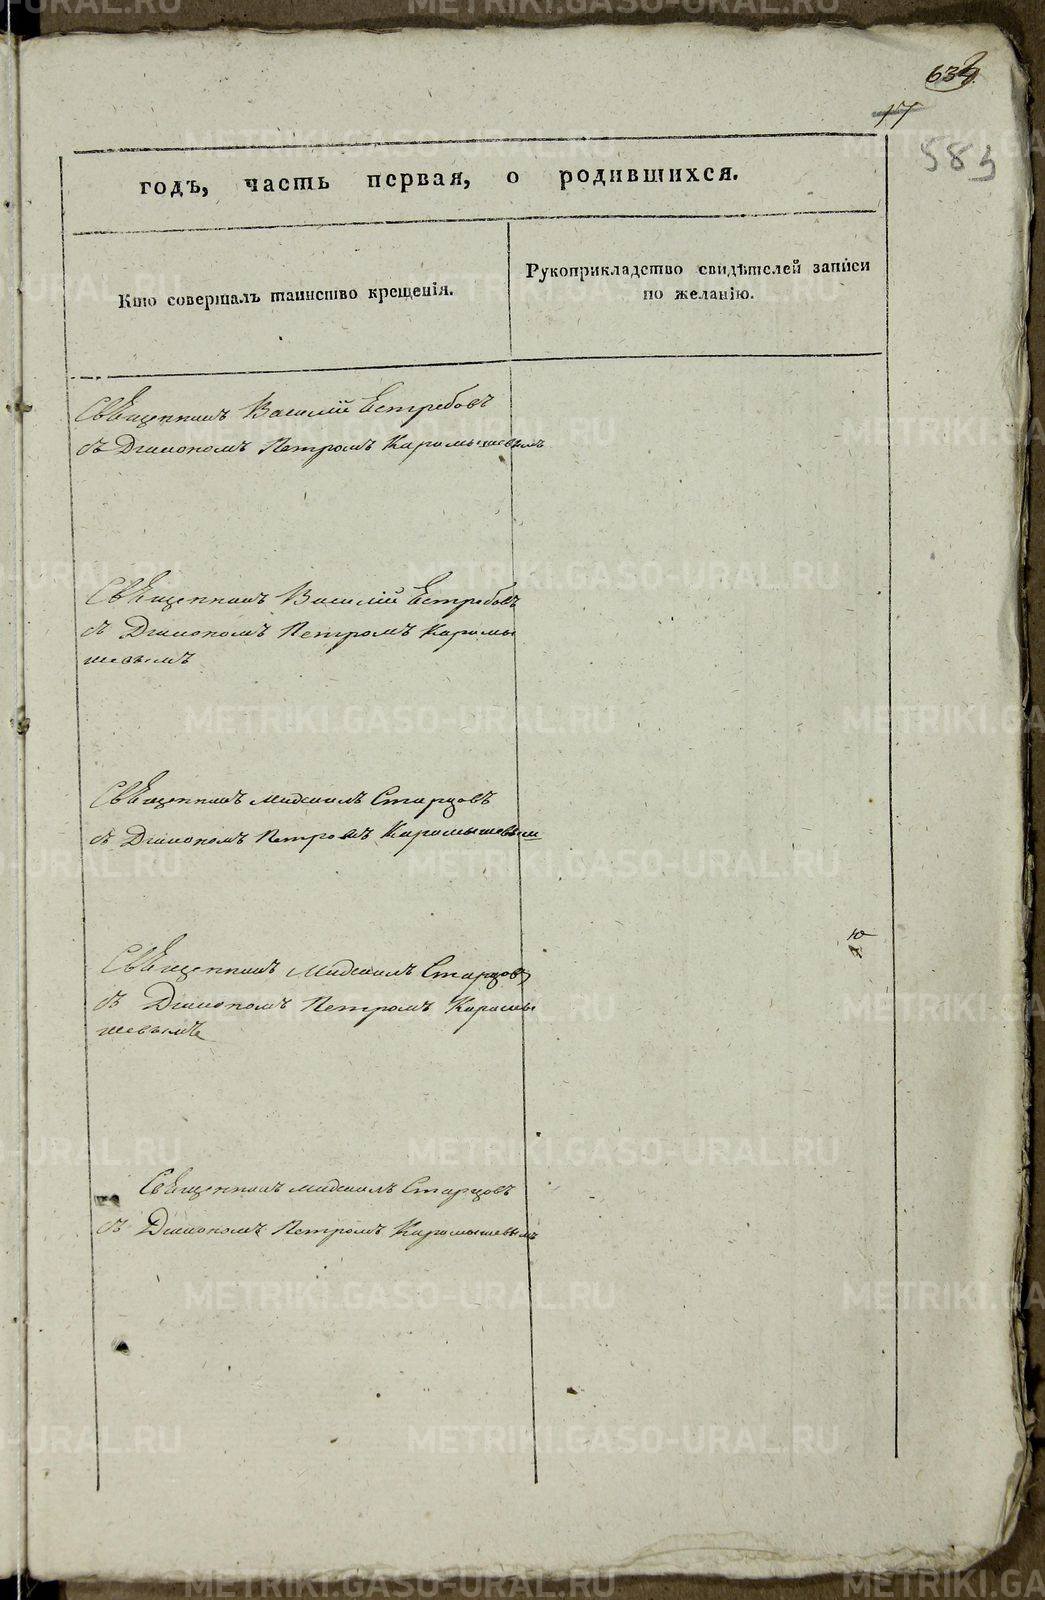 17
583
годъ, часть первая, о родившихся.
Кто совершалъ таинство крещенія.
Рукоприкладство свидѣтелей записи
по желанію.
Священникъ Василій Естребовъ
съ Діакономъ Петромъ Карамышевымъ
Священникъ Василій Естребовъ
съ Діакономъ Петромъ Карамы
шевымъ
Священникъ Михаилъ Старцовъ
съ Діакономъ Петромъ Карамышевым
Священникъ Михаилъ Старцовъ
съ Діакономъ Петромъ Карамы
шевымъ
Священникъ Михаилъ Старцовъ
съ Діакономъ Петромъ Карамышевымъ
METRIKI.GASO-URAL.RU